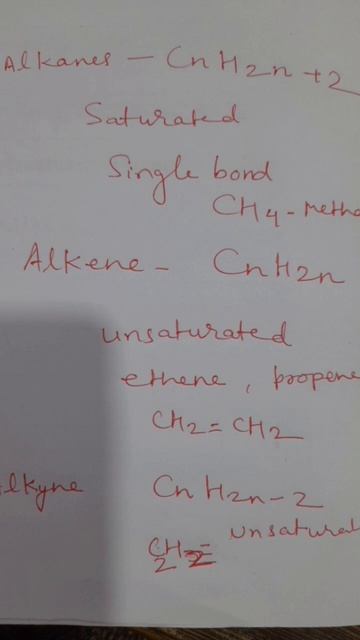 Alkanes - CnH2n+2
Saturated
Single bond
CH4 - Metha
Alkene - CnH2n
unsaturated
ethene, propene
CH2=CH2
lkyne CnH2n-2
unsaturat